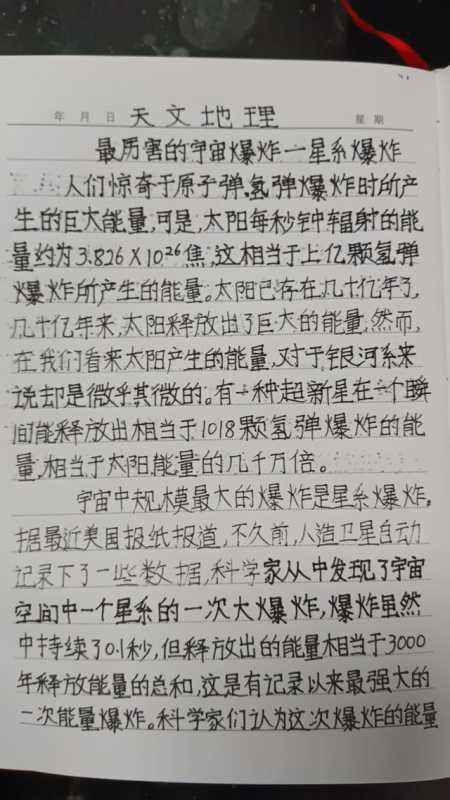 年 月 日 天文地理 星 期
最厉害的宇宙爆炸一星系爆炸
人们惊奇于原子弹.氢弹爆炸时所产
生的巨大能量,可是,太阳每秒钟辐射的能
量约为3.826×10²⁶焦,这相当于上亿颗氢弹
爆炸所产生的能量。太阳已存在几十亿年了,
几十亿年来,太阳释放出了巨大的能量,然而,
在我们看来太阳产生的能量,对于银河系来
说却是微乎其微的。有一种超新星在一个瞬
间能释放出相当于1018颗氢弹爆炸的能
量,相当于太阳能量的几千万倍。
宇宙中规模最大的爆炸是星系爆炸,
据最近美国报纸报道,不久前,人造卫星自动
记录下了一些数据,科学家从中发现了宇宙
空间中一个星系的一次大爆炸,爆炸虽然
中持续了0.1秒,但释放出的能量相当于3000
年释放能量的总和,这是有记录以来最强大的
一次能量爆炸。科学家们认为这次爆炸的能量